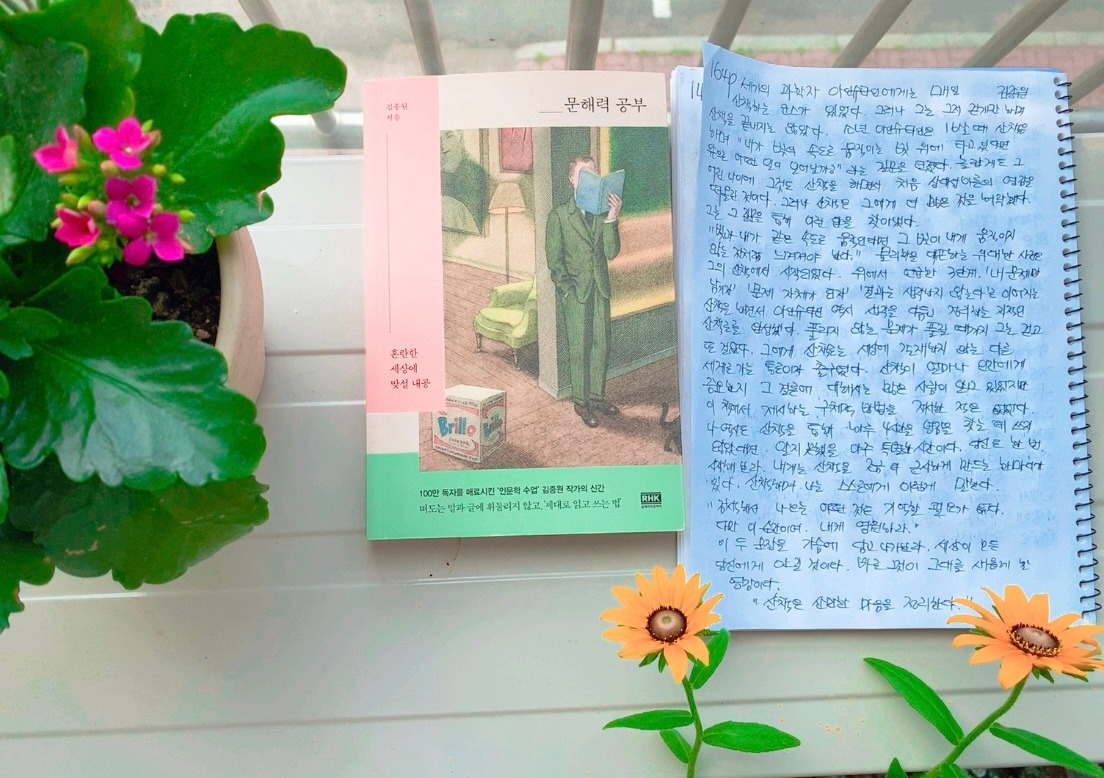 김종원
지음
문해력 공부
혼란한
세상에
맞설 내공
Brillo
100만 독자를 매료시킨 '인문학 수업' 김종원 작가의 신간
떠도는 말과 글에 휘둘리지 않고, '제대로 읽고 쓰는 법'
RHK
164p 세기의 과학자 아인슈타인에게는 매일 김종원
산책하는 코스가 있었다. 그러나 그는 그저 걷기만 하며
산책을 끝내지는 않았다. 소년 아인슈타인은 16살 때 산책을
하며 "내가 빛의 속도로 움직이는 빛 위에 타고 있다면
어떤 일이 일어날까?" 라는 질문을 던졌다. 놀랍게도 그
어린 나이에 그것도 산책을 하면서 처음 상대성이론의 영감을
떠올린 것이다. 그러나 산책은 그에게 더 많은 것을 허락했다.
그는 그 길을 통해 이런 답을 찾아냈다.
"빛과 내가 같은 속도로 움직인다면 그 빛이 내게 움직이지
않는 것처럼 느껴져야 한다." 물리학을 대표하는 위대한 시작은
그의 산책에서 시작되었다. 위에서 언급한 3단계, '내 문제만
남기자' '문제 자체가 되자' '결과는 생각하지 않는다'로 이어지는
산책을 하면서 아인슈타인 역시 생각을 다듬고
풀리지 않는 문제가 풀릴 때까지 그는 걷고
또 걸었다. 그에게 산책로는 세상에 존재하지 않는 다른
세계로 가는 통로이자 산책이 얼마나 인간에게
중요한지 그 결론에 대해서는 많은 사람이 알고 있었지만
이 책에서 제시하는 구체적 방법을 제시한 적은 없었다.
나 역시도 산책을 통해 하루 나만의 영감을 찾는 데 쓰의
아주 특별한 시간이다.
내게는 산책을 좀 더 근사하게 만드는 한마디가
있다. 산책하면서 나는 스스로에게 이렇게 말한다.
"감상해서 나쁜 어떤 것도 기억할 필요가 없다.
다만 이 순간이여, 내게 영원하라."
이 두 문장을 가슴에 담고 나가보라. 세상의 모든
당신에게 안길 것이다. 바로 그것이 그대를 새롭게 할
영감이다.
"산책은 산만한 마음을 정리한다."